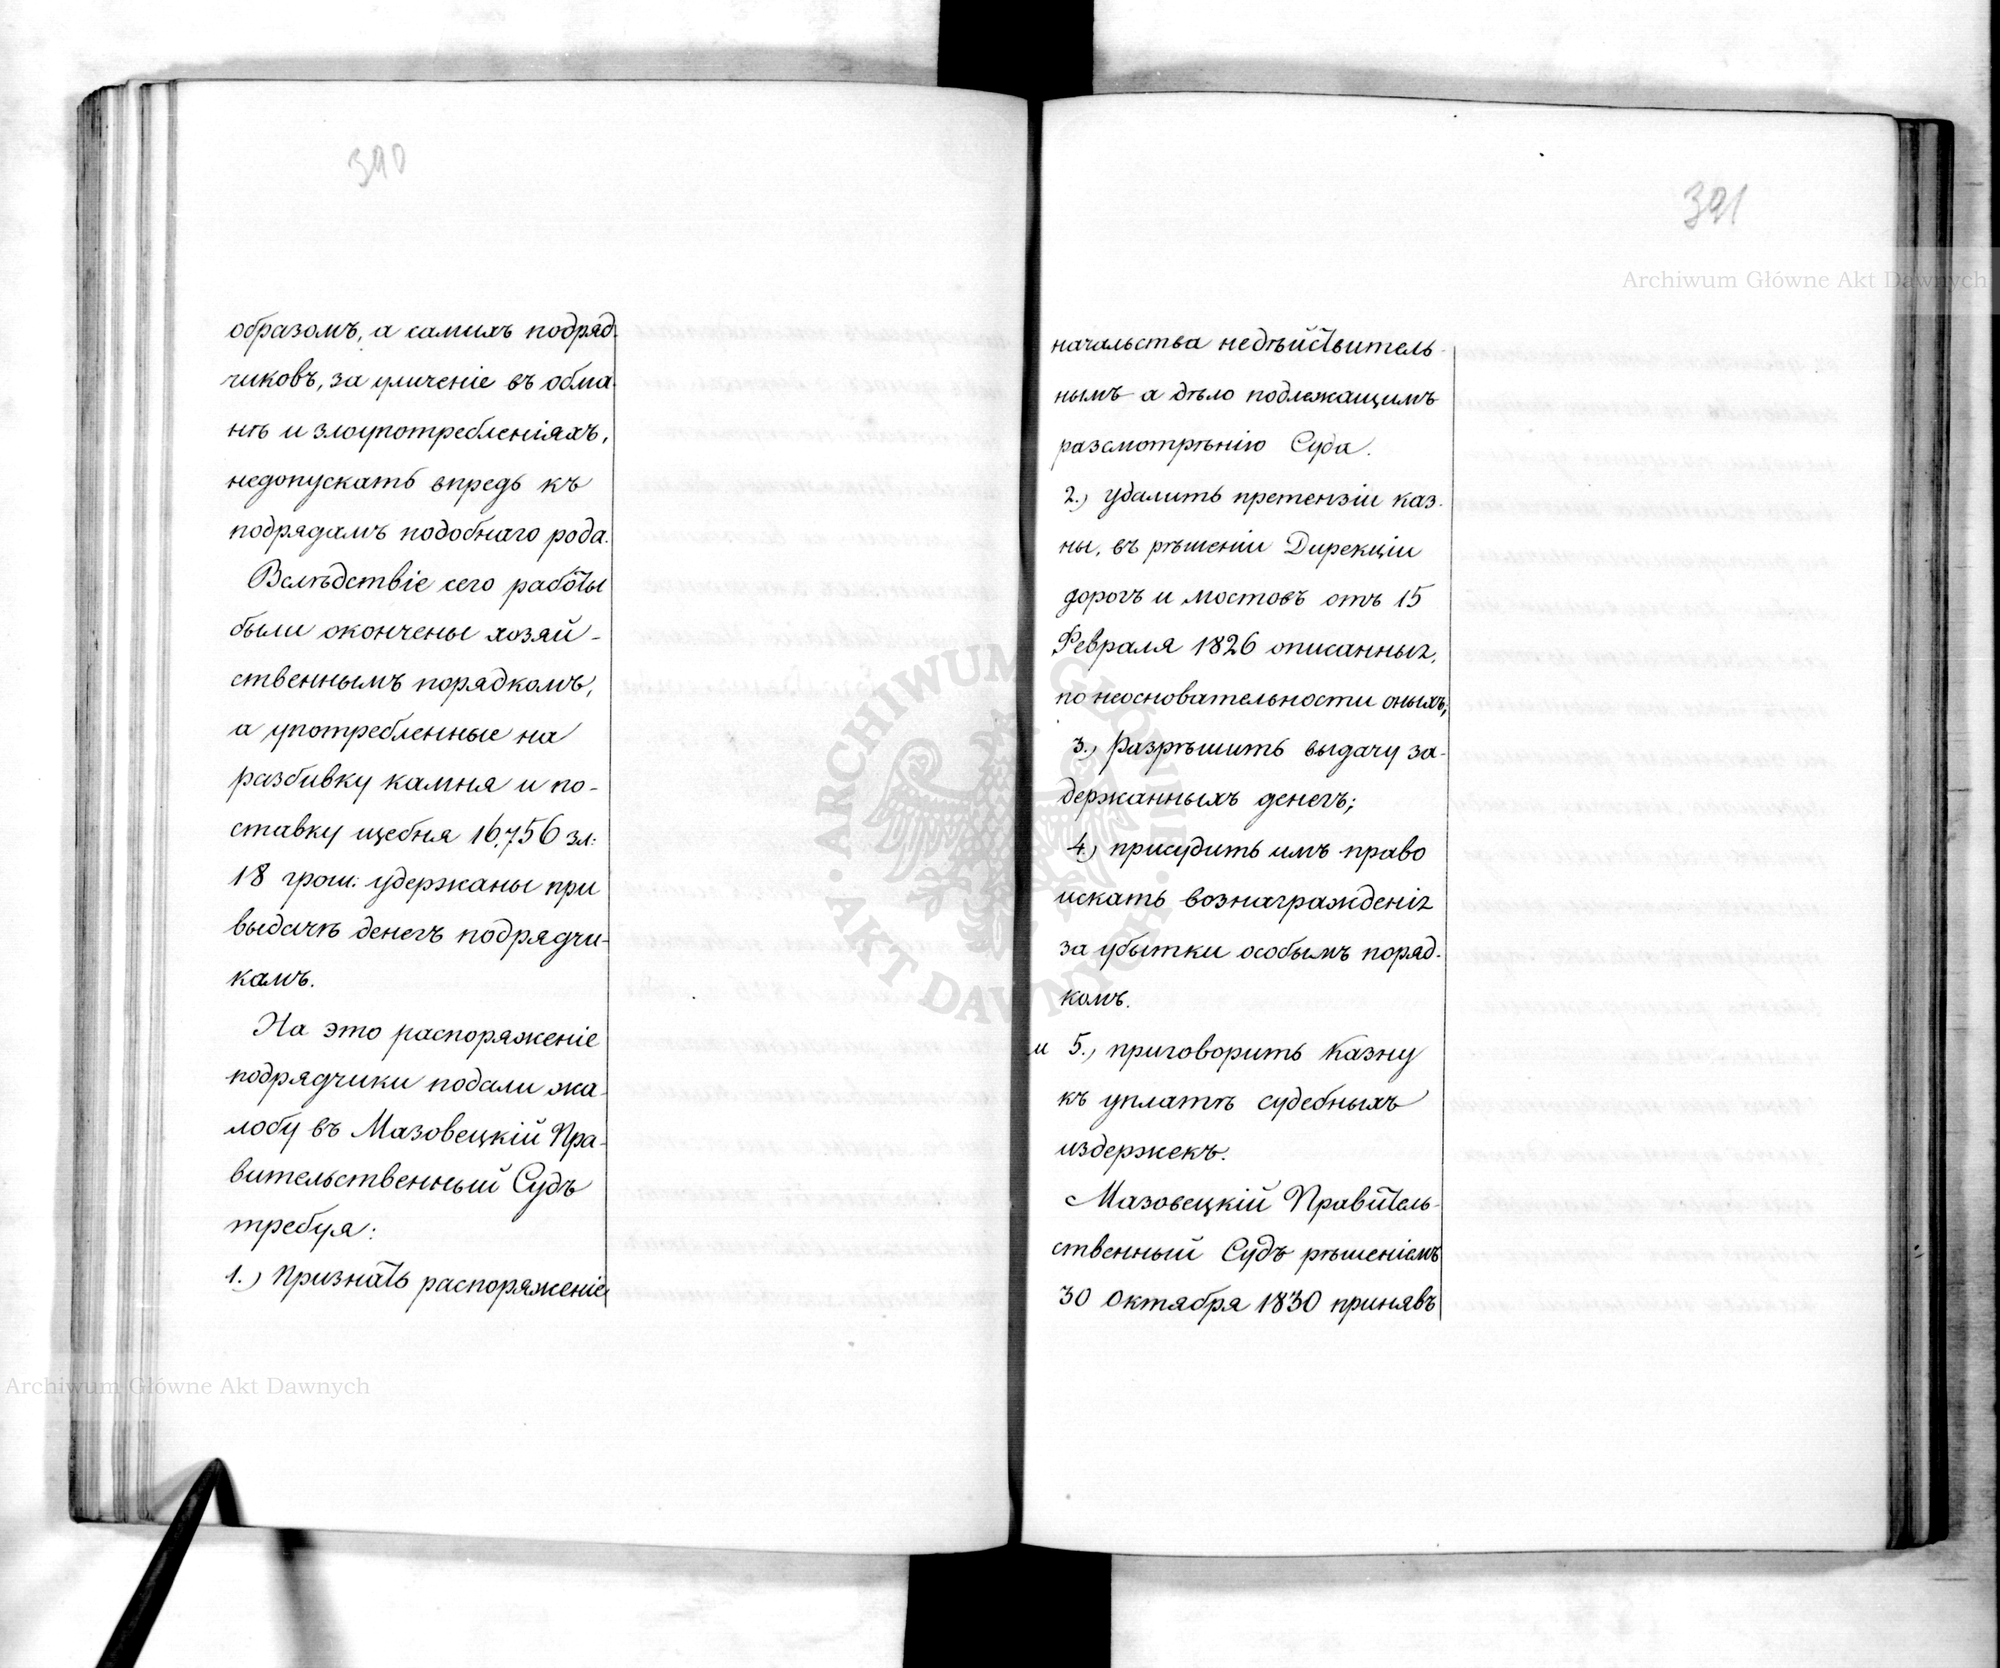 390
образомъ, а самихъ подряд-
чиковъ, за уличеніе въ обма-
нѣ и злоупотребленіяхъ,
недопускать впредь къ
подрядамъ подобнаго рода.
Вслѣдствіе сего работы
были окончены хозяй-
ственнымъ порядкомъ,
а употребленные на
разбивку камня и по-
ставку щебня 16,756 зл:
18 грош: удержаны при
выдачѣ денегъ подрядчи-
камъ.
На это распоряженіе
подрядчики подали жа-
лобу въ Мазовецкій Пра-
вительственный Судъ
требуя:
1.) Признать распоряженіе
391
начальства недѣйствитель-
нымъ а дѣло подлежащимъ
разсмотрѣнію Суда.
2.) удалить претензіи каз-
ны, въ рѣшеніи Дирекціи
дорогъ и мостовъ отъ 15
Февраля 1826 описанныя,
по неосновательности оныхъ,
3.) Разрѣшить выдачу за-
держанныхъ денегъ;
4.) присудить имъ право
искать вознагражденія
за убытки особымъ поряд-
комъ.
и 5.) приговорить Казну
къ уплатѣ судебныхъ
издержекъ.
Мазовецкій Правитель-
ственный Судъ рѣшеніемъ
30 Октября 1830 принявъ
Archiwum Główne Akt Dawnych
Archiwum Główne Akt Dawnych
ARCHIWUM GŁÓWNE · AKT DAWNYCH ·